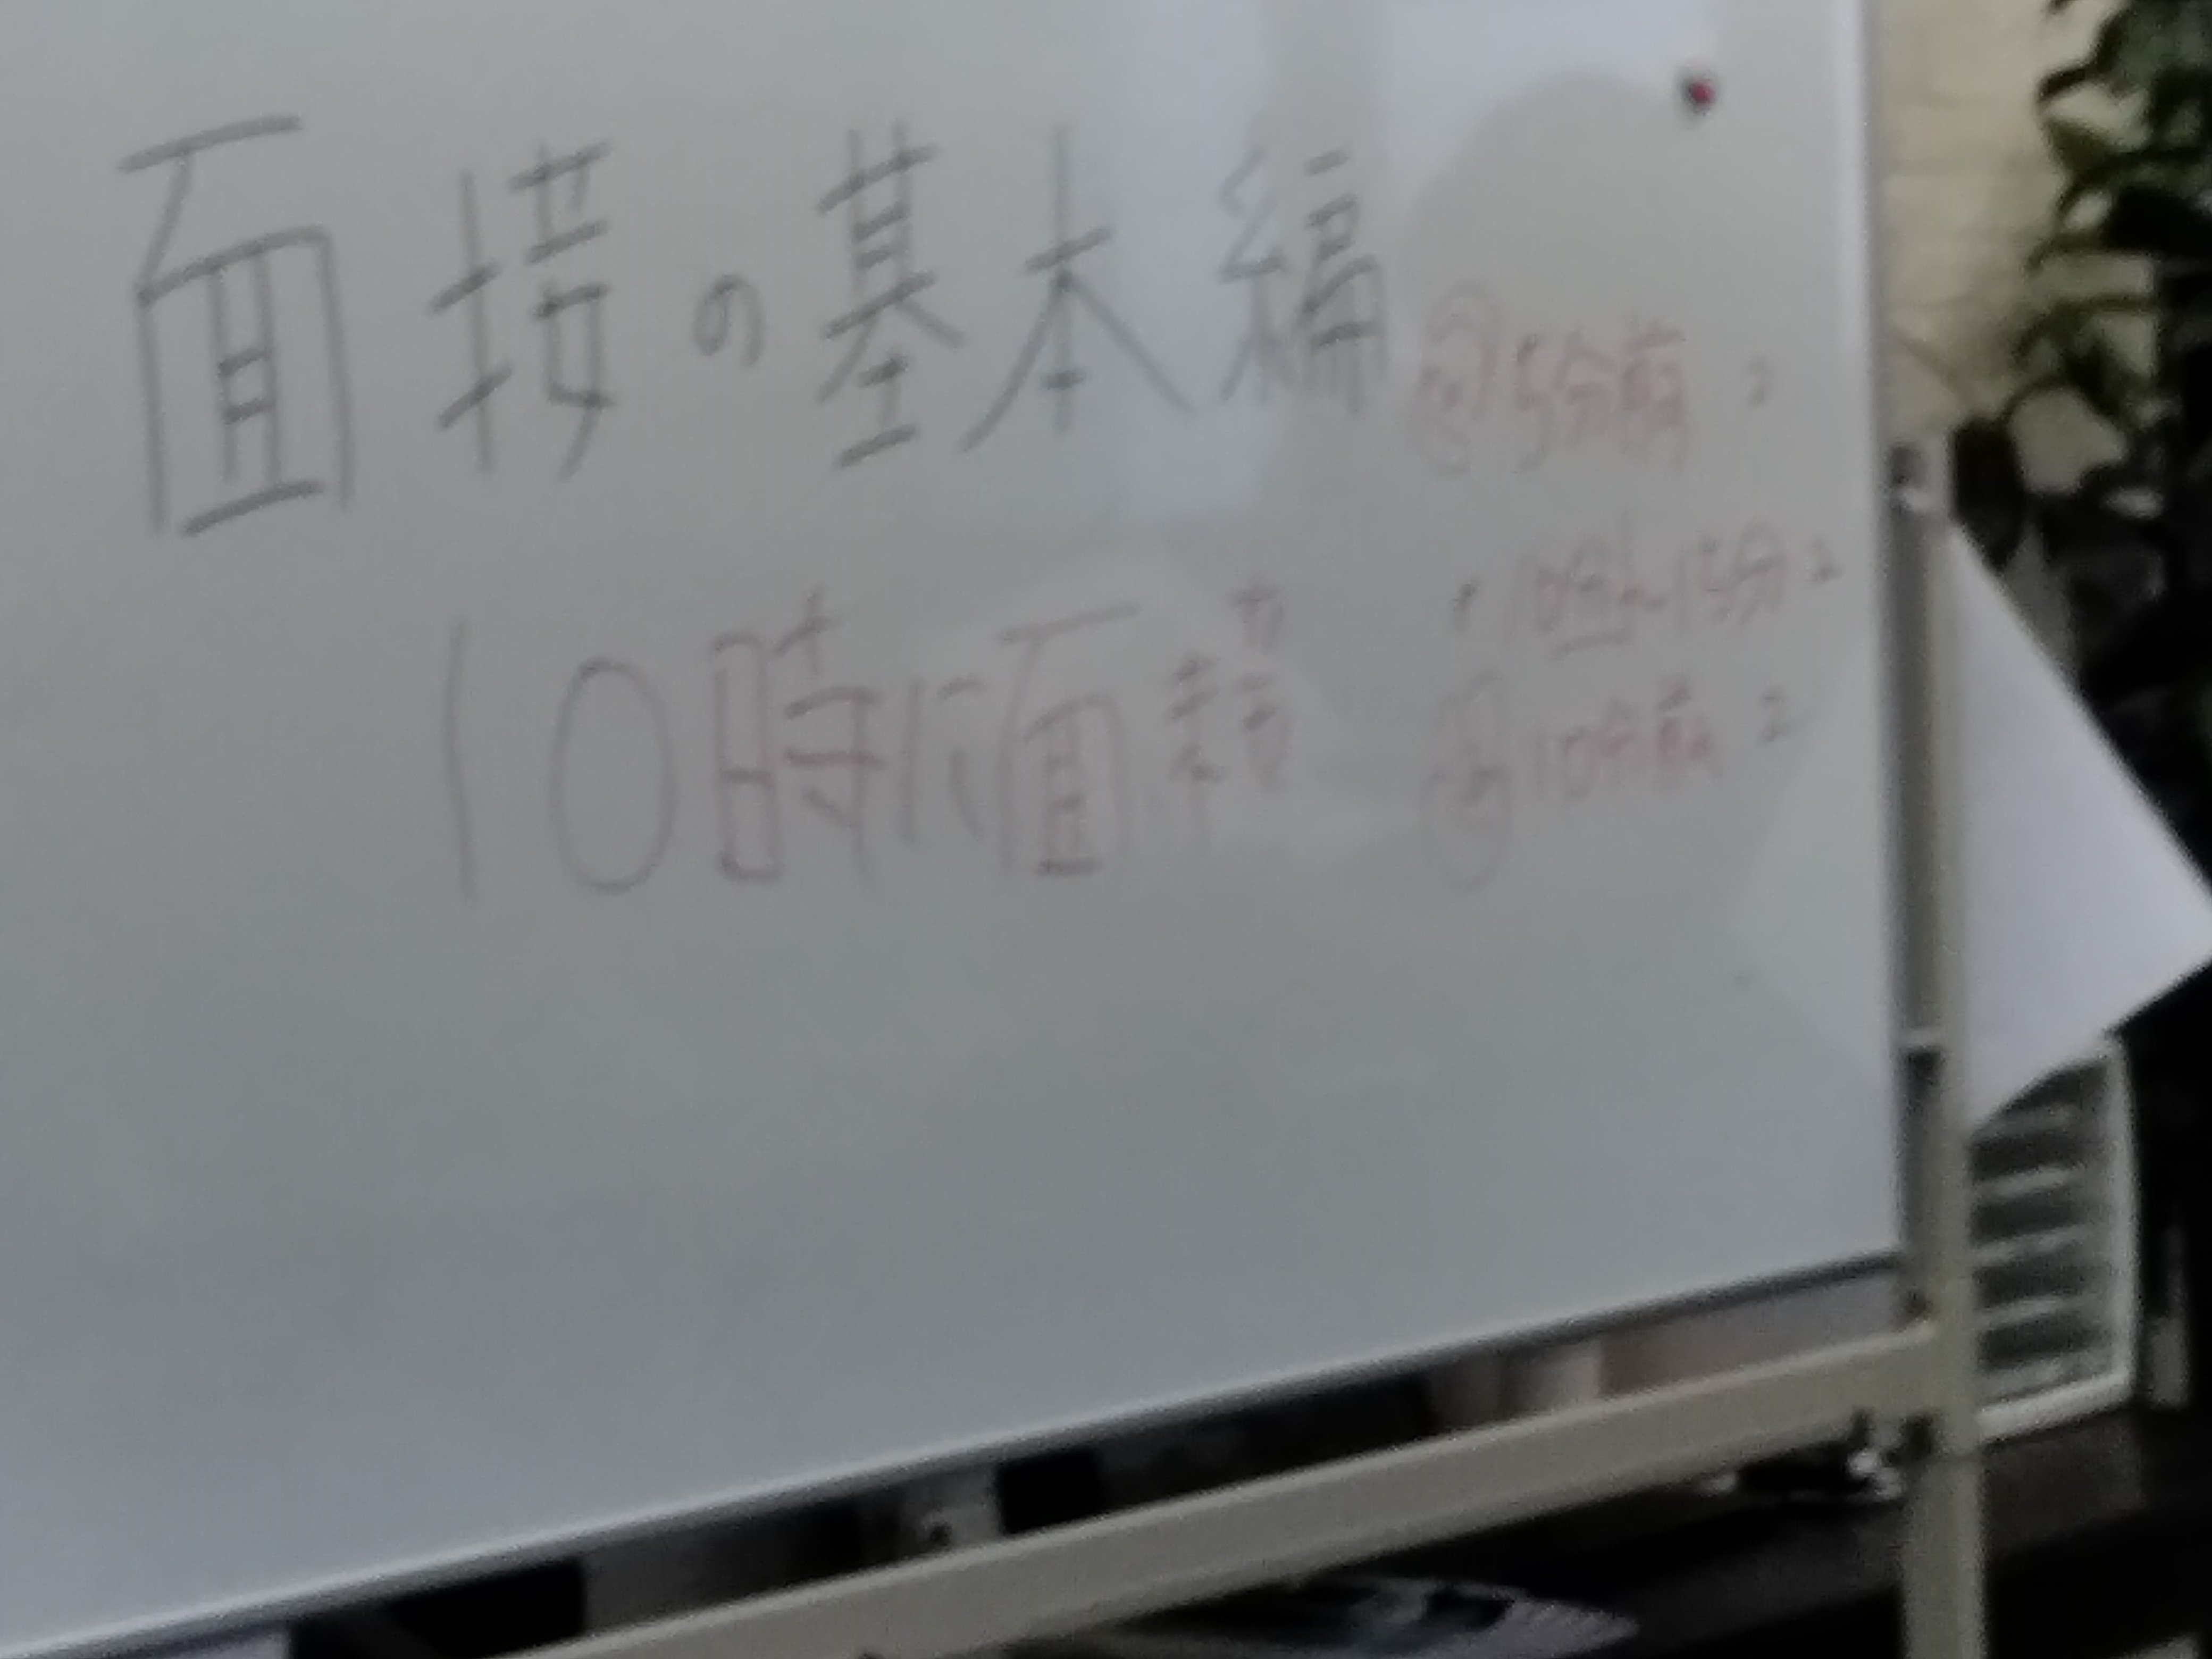 面接の基本編
5分前 2
10分〜15分 2
10時に面接
10分前 2